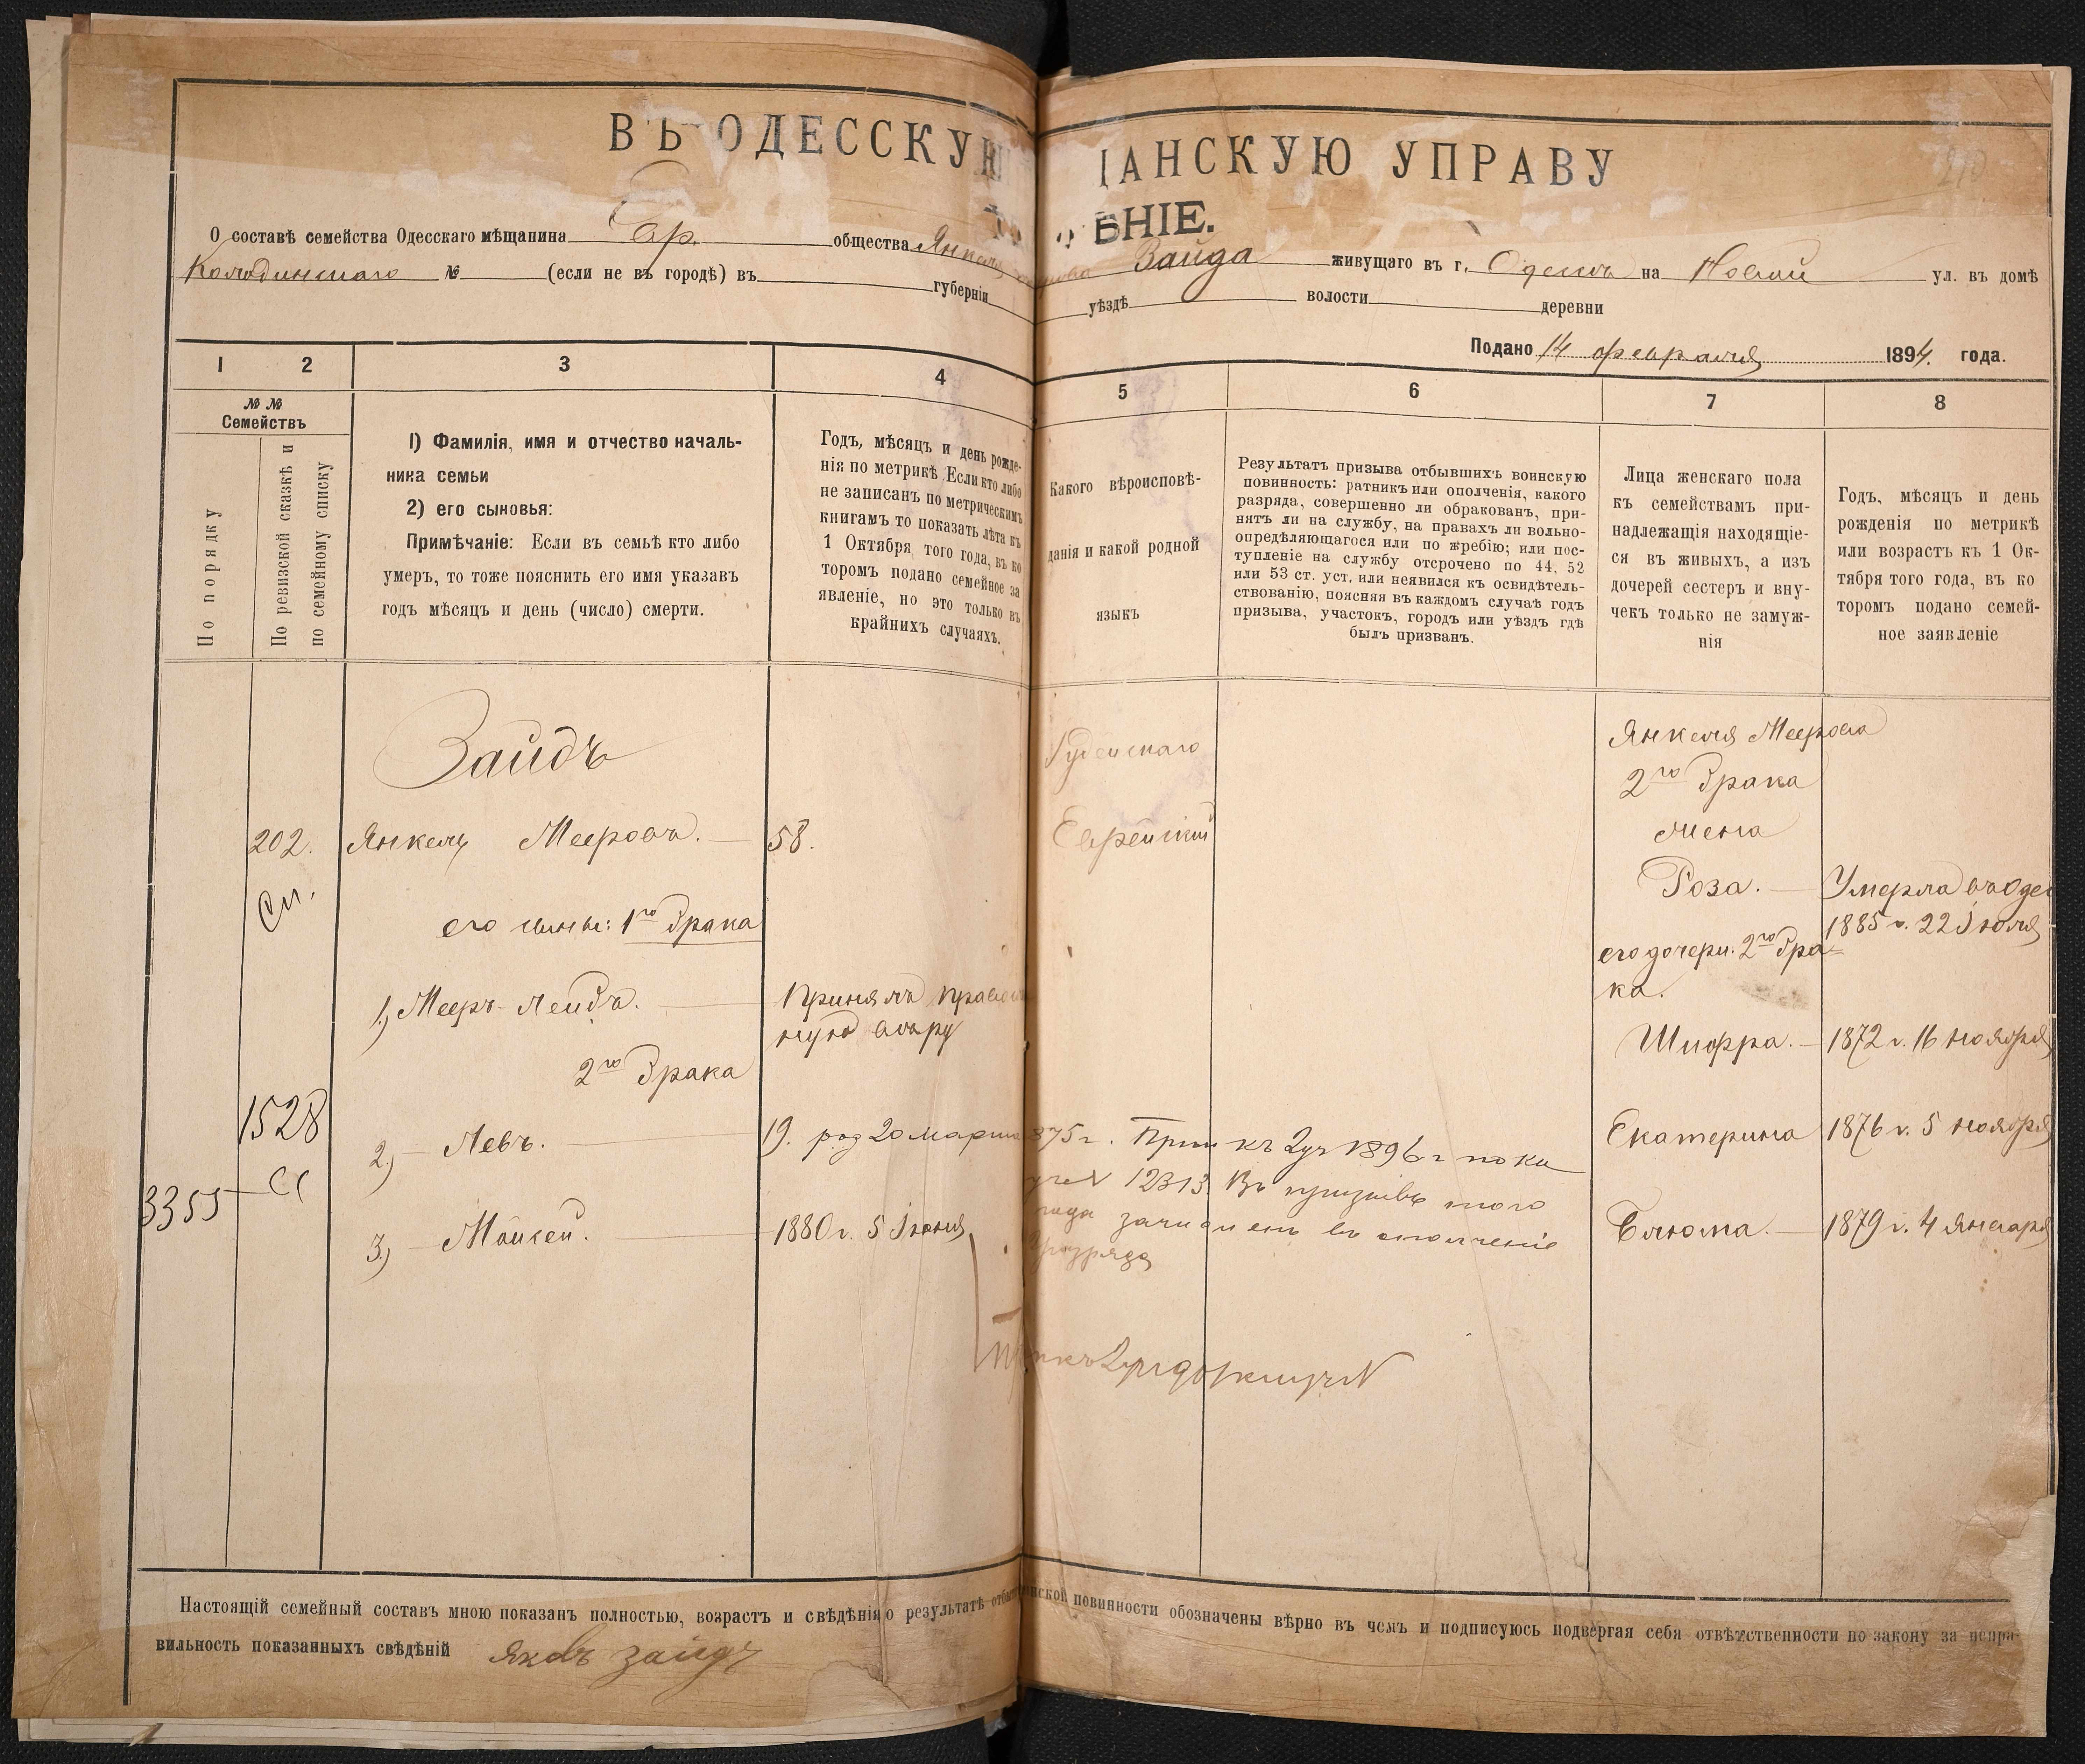 ВЪ ОДЕССКУЮ ЩАНСКУЮ УПРАВУ
ѢНІЕ.
О составѣ семейства Одесскаго мѣщанина Евр. общества Янкеля Зайда живущаго въ г. Одессѣ на Новой ул. въ домѣ
Колодинскаго № (если не въ городѣ) въ губерніи уѣздѣ волости деревни
Подано 14 февраля 1894. года.
1 2 3 4 5 6 7 8
№ № Семействъ
По порядку
По ревизской сказкѣ и
по семейному списку
1) Фамилія, имя и отчество началь-
ника семьи
2) его сыновья:
Примѣчаніе: Если въ семьѣ кто либо
умеръ, то тоже пояснить его имя указавъ
годъ мѣсяцъ и день (число) смерти.
Годъ, мѣсяцъ и день рожде-
нія по метрикѣ Если кто либо
не записанъ по метрическимъ
книгамъ то показать лѣта къ
1 Октября того года, въ ко
торомъ подано семейное за
явленіе, но это только въ
крайнихъ случаяхъ.
Какого вѣроисповѣ-
данія и какой родной
языкъ
Результатъ призыва отбывшихъ воинскую
повинность: ратникъ или ополченія, какого
разряда, совершенно ли обракованъ, при-
нятъ ли на службу, на правахъ ли вольно-
опредѣляющагося или по жребію; или пос-
тупленіе на службу отсрочено по 44, 52
или 53 ст. уст. или неявился къ освидѣтель-
ствованію, поясняя въ каждомъ случаѣ годъ
призыва, участокъ, городъ или уѣздъ гдѣ
былъ призванъ.
Лица женскаго пола
къ семействамъ при-
надлежащія находящіе-
ся въ живыхъ, а изъ
дочерей сестеръ и вну-
чекъ только не замуж-
нія
Годъ, мѣсяцъ и день
рожденія по метрикѣ
или возрастъ къ 1 Ок-
тября того года, въ ко
торомъ подано семей-
ное заявленіе
Зайдъ
Іудейскаго
Янкеля Меерова
2го брака
жена
202. Янкель Мееровъ. 58.
Еврейскій
Роза. Умерла въ Одес
1885 г. 22 Іюля
Сп.
его сыны: 1го брака
его дочери: 2го бра=
ка.
1) Мееръ-Лейбъ. Принялъ правосл
ную вѣру
Шифра. 1872 г. 16 Ноября
2го брака
1528
2) Левъ. 19. род 20 марта 875 г. Прип къ 2 уч 1896 г
12313. Въ призывъ того
года зачисленъ въ ополченіе
2 разряда
Екатерина 1876 г. 5 Ноября
3355 СС
3) Мойсей. 1880 г. 5 Іюня
Блюма. 1879 г. 4 Января
Настоящій семейный составъ мною показанъ полностью, возрастъ и свѣдѣнія о результатѣ отбы нской повинности обозначены вѣрно въ чемъ и подписуюсь подвергая себя отвѣтственности по закону за непра-
вильность показанныхъ свѣдѣній Яковъ Зайдъ